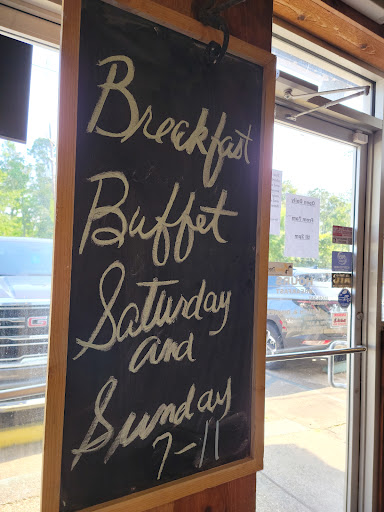 Breckfast
Buffet
Saturday
and
Sunday
7-11